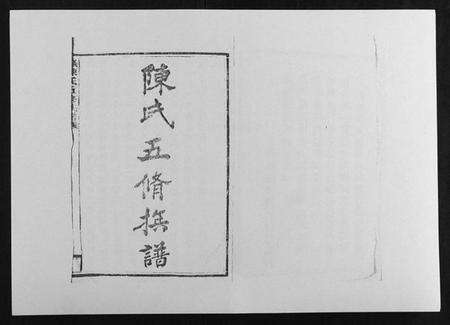 陳氏五脩撰譜